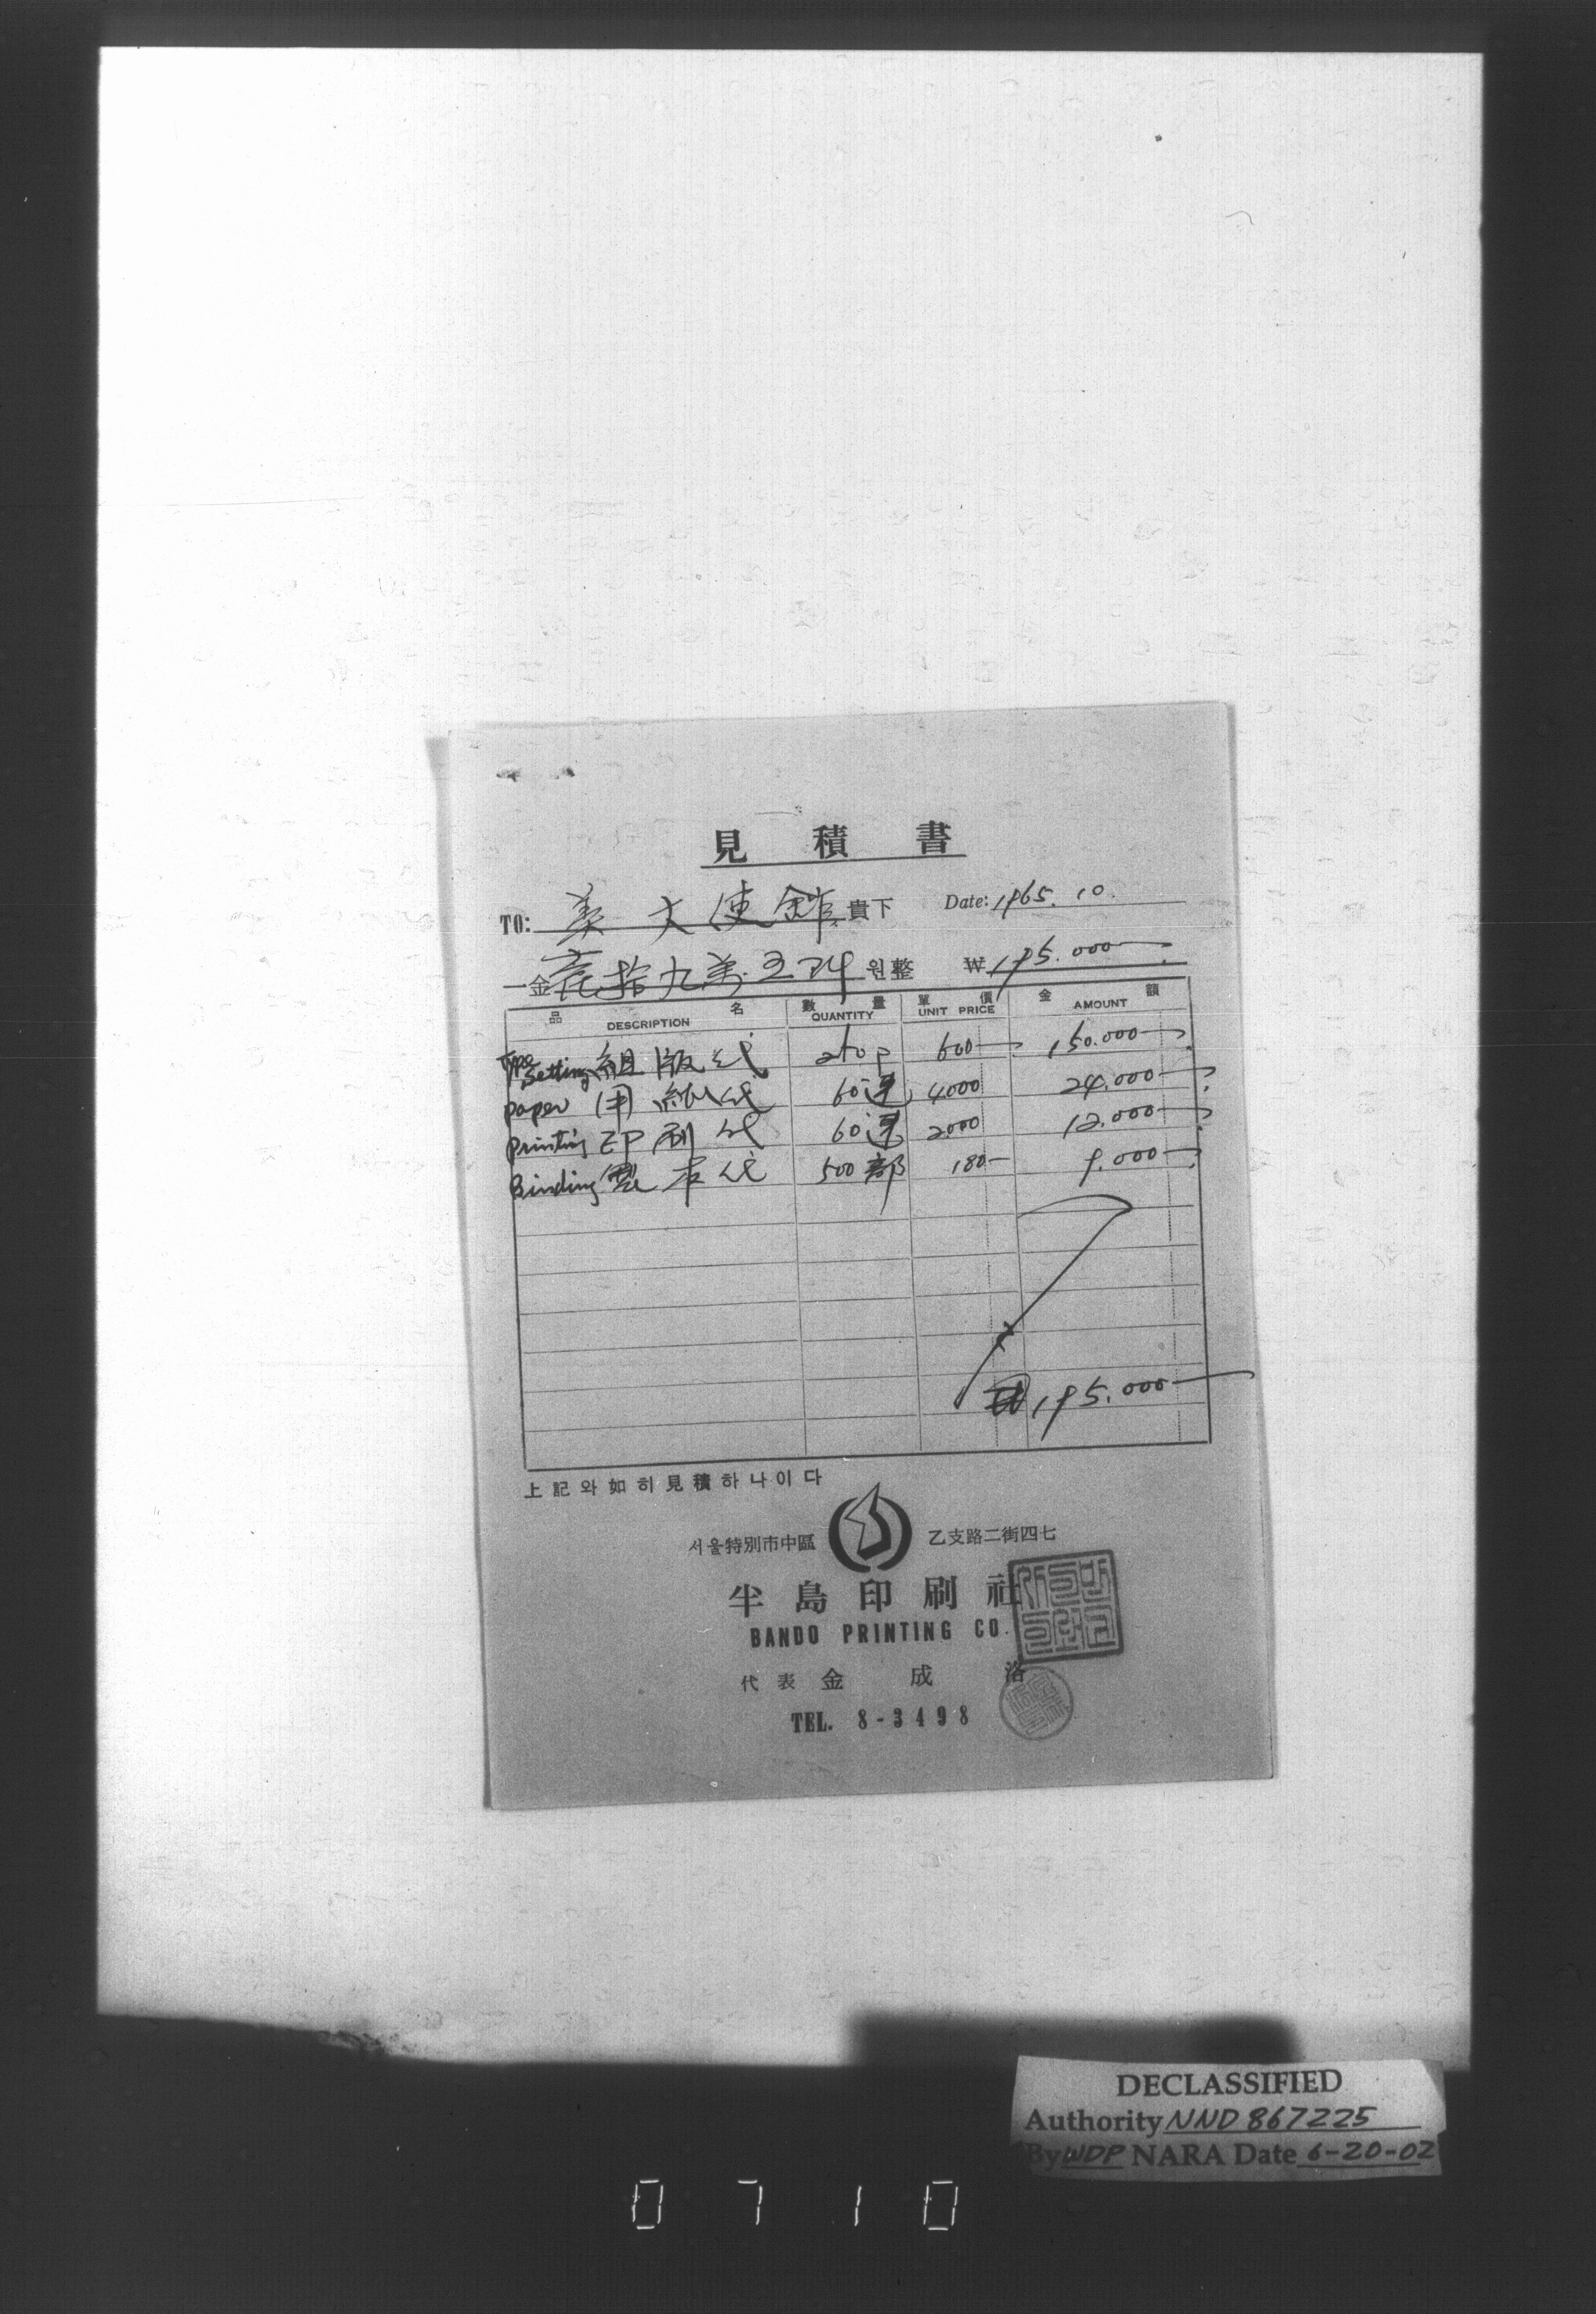 見積書
TO: 美大使館 貴下 Date: 1965. 10.
一金 壹拾九萬五阡 원整 ₩ 195.000
品名 DESCRIPTION 數量 QUANTITY 單價 UNIT PRICE 金額 AMOUNT
Type Setting 組版代 250p 600 150.000
paper 用紙代 60連 4000 24.000
printing 印刷代 60連 2000 12.000
Binding 製本代 500部 180 9.000
195.000
上記와如히見積하나이다
서울特別市中區 乙支路二街四七
半島印刷社
BANDO PRINTING CO.
代表 金成洛
TEL. 8-3498
DECLASSIFIED
Authority NND 867225
By WDP NARA Date 6-20-02
0710